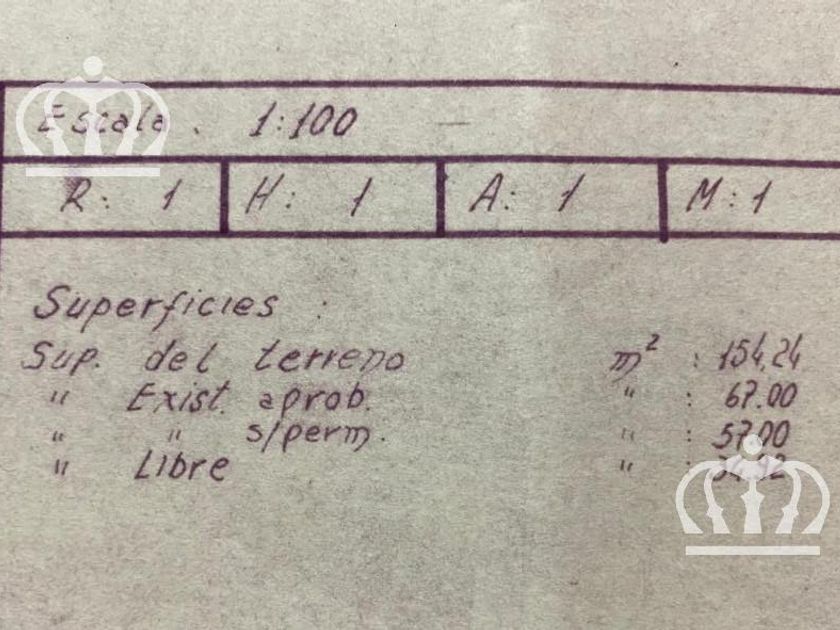 Escala. 1:100
R: 1 H: 1 A: 1 M: 1
Superficies :
Sup. del terreno m² : 154,24
" Exist. aprob. " : 67.00
" " s/perm. " : 57.00
" Libre " :